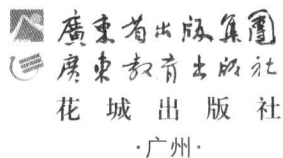 廣東省出版集團
廣東教育出版社
花城出版社
·广州·